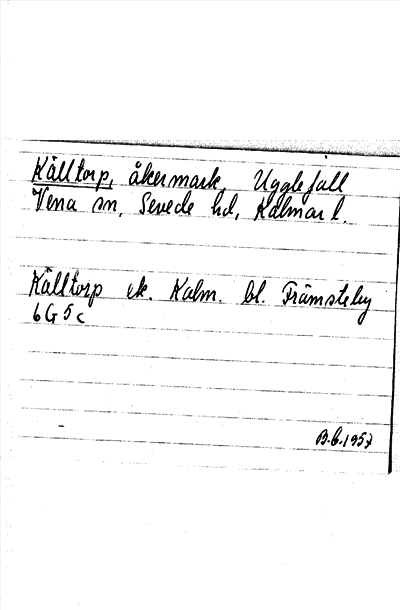 Källtorp, åkermark, Ugglefall
Vena sn, Sevede hd, Kalmar l.
Källtorp ek. Kalm. bl. Främsteby
6 G 5 c
B.C. 1957